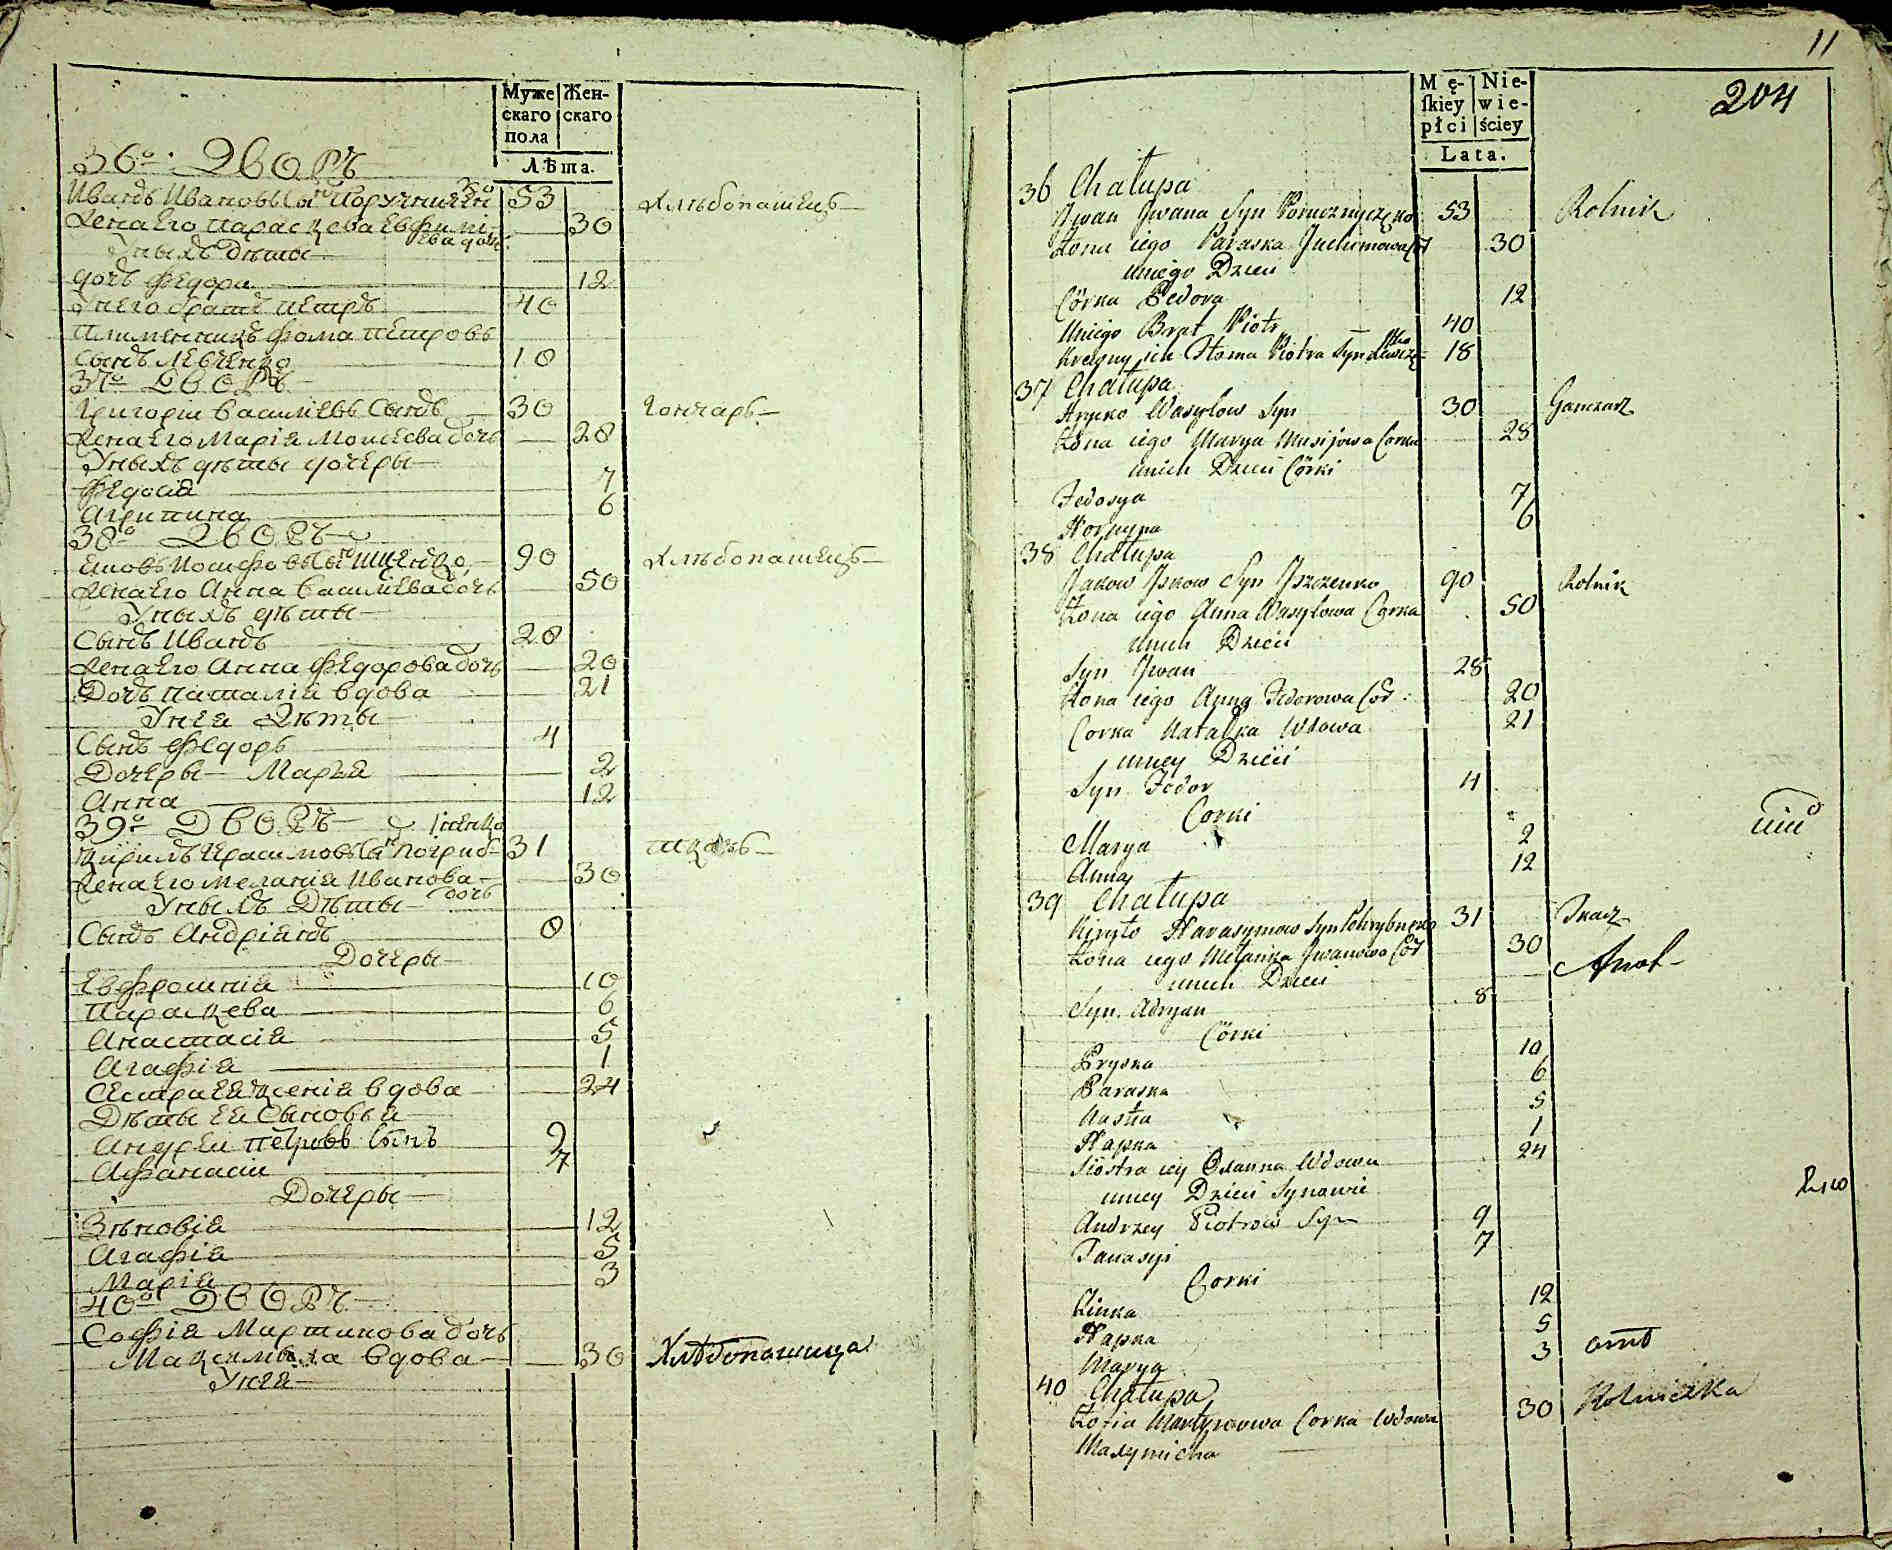 Муже скаго пола
Жен- скаго
Лѣта.
36о. Дворъ
Иванъ Ивановъ Сынъ Поручниченко 53 Хлѣбопашецъ
Жена Его Параскева Евфимиева дочь 30
У ныхъ дѣты
дочь Федора 12
У него братъ петръ 40
племенникъ фома петровъ
сынъ Левченко 18
37о Дворъ
Григорій василиевъ Сынъ 30 Гончарь
Жена Его Марія Моисеева дочь 28
У ныхъ дѣты дочеры
Федосія 7
Агрипина 6
38о Дворъ
Яковъ Иосифовъ Сынъ Ищенко 90 Хлѣбопашецъ
Жена Его Анна Василиева дочь 50
У ныхъ дѣты
Сынъ Иванъ 28
Жена Его Анна Федорова дочь 20
Дочь наталия вдова 21
У нея Дѣты
Сынъ Федоръ 4
Дочеры Марья 2
Анна 12
39о Дворъ
Кирилъ Герасимовъ Сынъ Погрибненко 31 ткачъ
Жена Его мелания Иванова дочь 30
У ныхъ Дѣты
Сынъ Андріянъ 8
Дочеры
Евфросинія 10
Параскева 6
Анастасія 5
Агафія 1
Сестра Ея Ксенія вдова 24
Дѣты Ея Сыновья
Андрей петровъ Сынъ 9
Афанасій 7
Дочеры
Зѣновія 12
Агафія 5
Марія 3
40о Дворъ
Софія Мартинова дочь
Максимыха вдова 30 Хлѣбопашица
У нея
11
204
Mę- ſkiey płci
Nie- wie- ściey
Lata.
36 Chałupa
Jwan Jwana Syn Porucznyczęko 53 Rolnik
Żona iego Paraska Juchimowa Cor 30
u niego Dzieci
Córka Fedora 12
U niego Brat Piotr 40
Krewny ich Homa Piotra Syn Lewczęko 18
37 Chałupa
Hrycko Wasylow Syn 30 Ganczarz
Żona iego Marya Musijowa Corka 28
u nich Dzieci Córki
Fedosya 7
Horpyna 6
38 Chałupa
Jakow Jskow Syn Jszczenko 90 Rolnik
Żona iego Anna Wasylowa Corka 50
u nich Dzieci
Syn Jwan 28
Żona iego Anna Fedorowa Cor: 20
Corka Natalka Wdowa 21
u niey Dzieci
Syn Fedor 4
Corki
Marya 2
Anna 12
39 Chałupa
Kiryło Harasymow Syn Pohrybnęko 31 Tkacz
Żona iego Mełanka Jwanowa Cor 30
u nich Dzieci
Syn Adryan 8
Córki
Pryska 10
Paraska 6
Nastia 5
Hapka 1
Siostra iey Oxanna Wdowa 24
u niey Dzieci Synowie
Andrzey Piotrow Syn 9
Panasyi 7
Corki
Zinka 12
Hapka 5
Marya 3
40 Chałupa
Zofia Martynowa Corka Wdowa 30 Rolniczka
Maxymicha